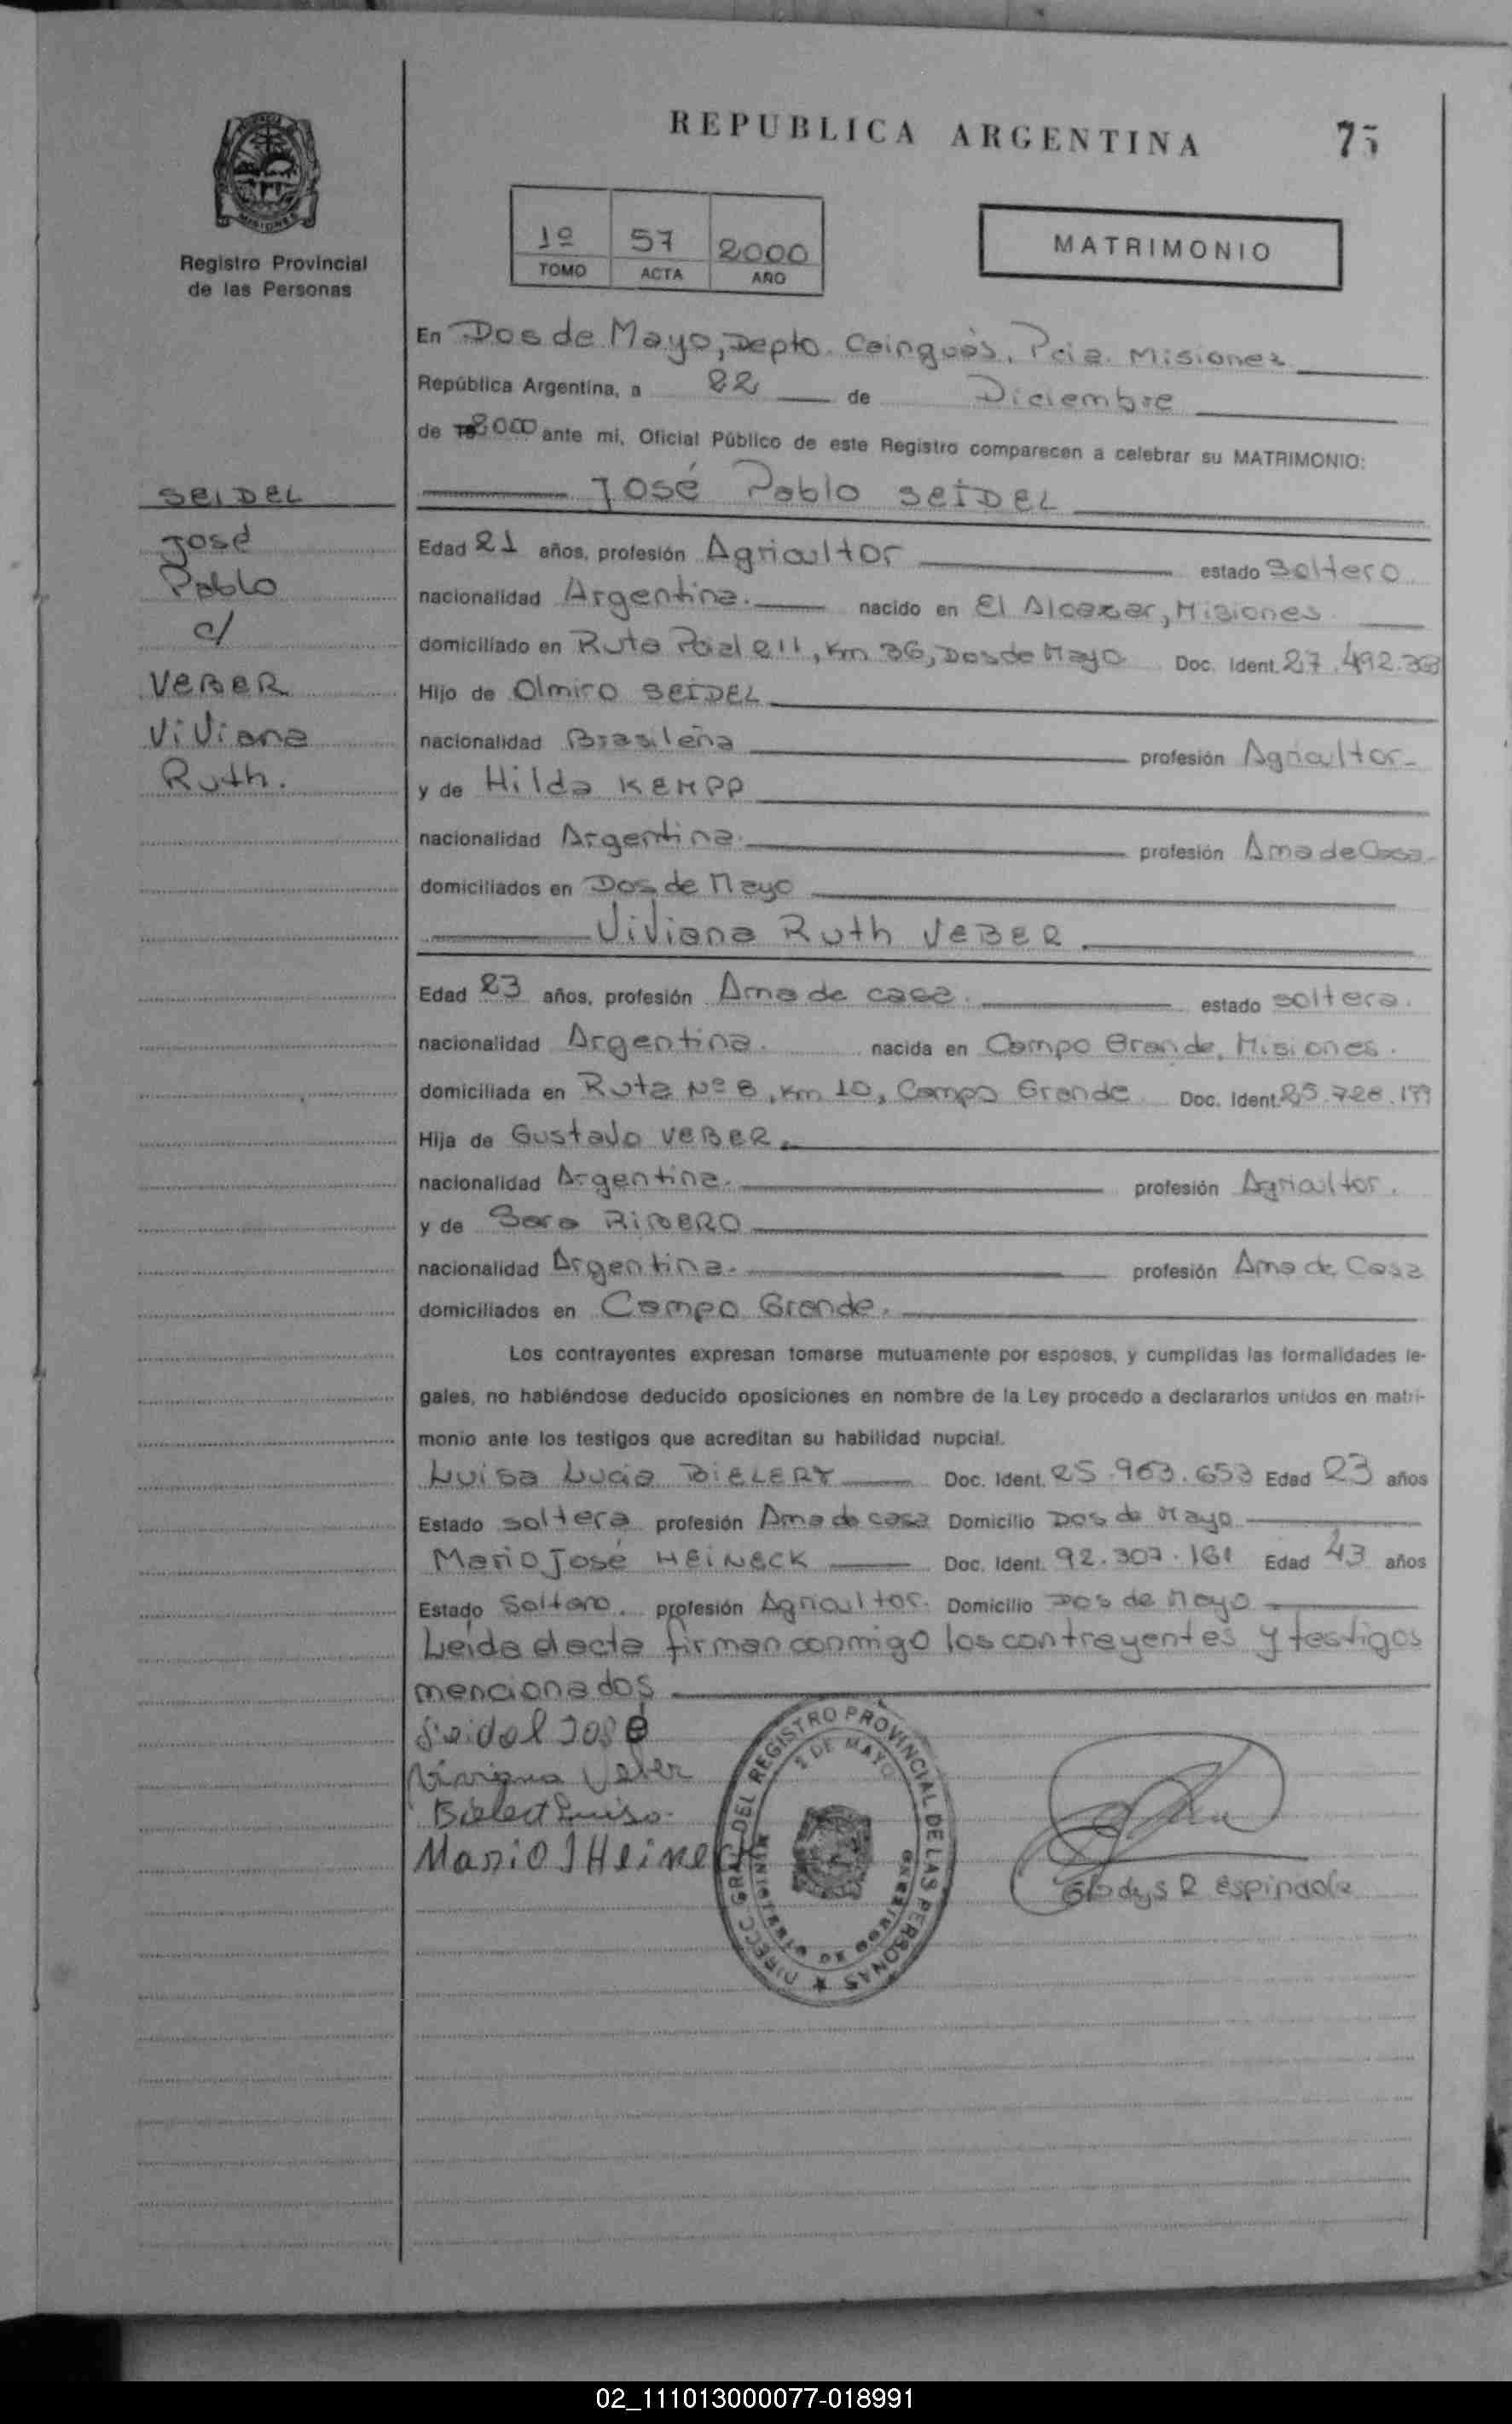 REPUBLICA ARGENTINA
75
MISIONES
Registro Provincial
de las Personas
1º 57 2000
TOMO ACTA AÑO
MATRIMONIO
En Dos de Mayo, Depto. Cainguás, Pcia. Misiones
República Argentina, a 22 de Diciembre
de 2000 ante mi, Oficial Público de este Registro comparecen a celebrar su MATRIMONIO:
José Pablo SEIDEL
SEIDEL
José
Pablo
c/
VEBER
Viviana
Ruth.
Edad 21 años, profesión Agricultor estado Soltero
nacionalidad Argentina. nacido en El Alcazar, Misiones
domiciliado en Ruta Pcial 211, Km 36, Dos de Mayo Doc. Ident. 27.492.363
Hijo de Olmiro SEIDEL
nacionalidad Brasileña profesión Agricultor
y de Hilda KEMPP
nacionalidad Argentina. profesión Ama de Casa
domiciliados en Dos de Mayo
Viviana Ruth VEBER
Edad 23 años, profesión Ama de casa. estado soltera.
nacionalidad Argentina. nacida en Campo Grande, Misiones.
domiciliada en Ruta Nº 8, Km 10, Campo Grande Doc. Ident. 25.728.177
Hija de Gustavo VEBER.
nacionalidad Argentina. profesión Agricultor.
y de Sara RIBERO
nacionalidad Argentina. profesión Ama de Casa
domiciliados en Campo Grande.
Los contrayentes expresan tomarse mutuamente por esposos, y cumplidas las formalidades le-
gales, no habiéndose deducido oposiciones en nombre de la Ley procedo a declararlos unidos en matri-
monio ante los testigos que acreditan su habilidad nupcial.
Luisa Lucia BIELERT Doc. Ident. 25.963.653 Edad 23 años
Estado soltera profesión Ama de casa Domicilio Dos de Mayo
Mario José HEINECK Doc. Ident. 92.307.161 Edad 43 años
Estado Soltero. profesión Agricultor. Domicilio Dos de Mayo
Leida el acta firman conmigo los contrayentes y testigos
mencionados
Seidel José
Viviana Veber
Bielert Luisa.
Mario J Heineck
DIRECC GRAL DEL REGISTRO PROVINCIAL DE LAS PERSONAS
2 DE MAYO
MINISTERIO DE GOBIERNO
Gladys R Espindola
02_111013000077-018991